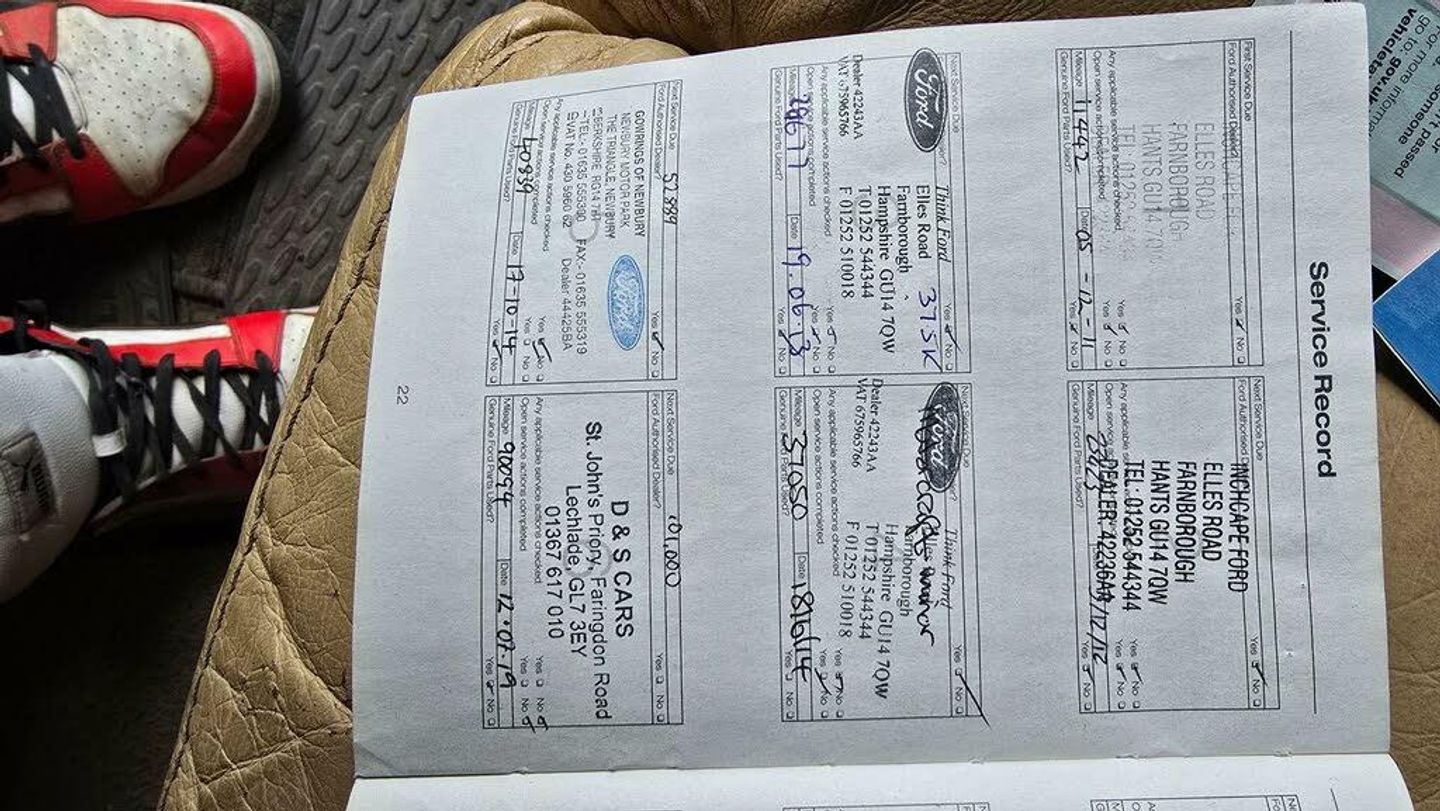 Service Record
First Service Due
Ford Authorised Dealer?
Yes No
ELLES ROAD
FARNBOROUGH
HANTS GU14 7QW
TEL: 01252
Any applicable service actions checked
Yes No
Open service actions completed
Yes No
Mileage 11442 Date 05-12-11
Genuine Ford Parts Used?
Yes No
Next Service Due
Ford Authorised
Yes No
INCHCAPE FORD
ELLES ROAD
FARNBOROUGH
HANTS GU14 7QW
TEL: 01252 544344
DEALER: 42236AA
Any applicable
Yes No
Open service
Yes No
/12/12
Genuine Ford Parts Used?
Yes No
Next Service Due
Yes No
Ford
Think Ford
Elles Road 37.5K
Farnborough
Hampshire GU14 7QW
Dealer 42243AA T 01252 544344
VAT 675965766 F 01252 510018
Any applicable service actions checked
Yes No
Open service actions completed
Yes No
Mileage Date 19.06.13
Genuine Ford Parts Used?
Yes No
Ford
Think Ford
Yes No
Farnborough
Hampshire GU14 7QW
Dealer 42243AA T 01252 544344
VAT 675965766 F 01252 510018
Any applicable service actions checked
Yes No
Open service actions completed
Yes No
Mileage 37050 Date 18/6/14
Genuine Ford Parts Used?
Yes No
Next Service Due 52889
Ford Authorised Dealer?
Yes No
GOWRINGS OF NEWBURY
NEWBURY MOTOR PARK
THE TRIANGLE, NEWBURY
BERKSHIRE RG14 7HT
TEL:- 01635 555390 FAX:- 01635 555319
VAT No. 430 5960 62 Dealer 44425BA
Ford
Any applicable service actions checked
Yes No
Open service actions completed
Yes No
Mileage 40839 Date 17-10-14
Genuine Ford Parts Used?
Yes No
Next Service Due 101,000
Ford Authorised Dealer?
Yes No
D & S CARS
St. John's Priory, Faringdon Road
Lechlade, GL7 3EY
01367 617 010
Any applicable service actions checked
Yes No
Open service actions completed
Yes No
Mileage 90094 Date 12.07.19
Genuine Ford Parts Used?
Yes No
22
For more
go to: gov.uk
vehicle
someone
passed
PUMA